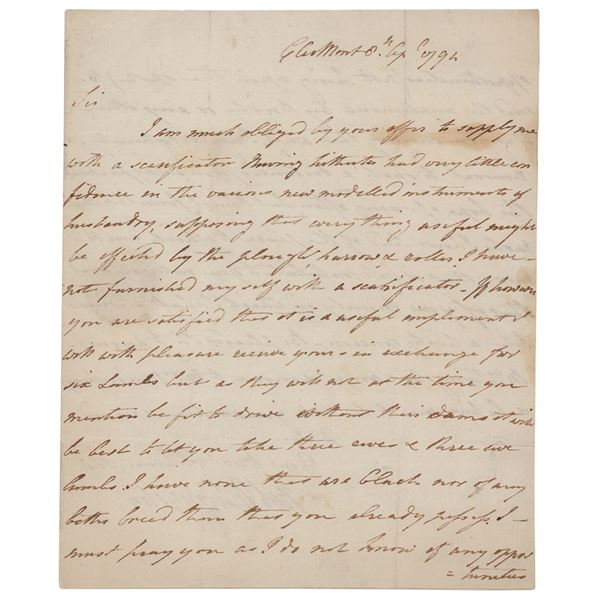 ClerMont 8th Apl 1794
Sir
I am much obliged by your offer to supply me
with a scarificator Having hitherto had very little con
fidence in the various new modelled instruments of
husbandry, supposing that everything useful might
be effected by the plough, harrow & roller, I have
not furnished my self with a scarificator - If however
you are satisfied that it is a useful implement I
will with pleasure receive yours in exchange for
six Lambs but as they will not at the time you
mention be fit to drive without their dams it will
be best to let you take three ewes & three ewe
lambs I have none that are black nor of any
better breed than that you already possess. I
must pray you as I do not know of any oppor
=tunities